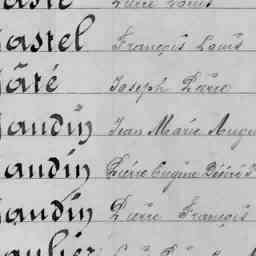 Pierre Louis
astel François Louis
âté Joseph Pierre
audin Jean Marie Augu
audin Pierre Eugène Désiré
audin Pierre François